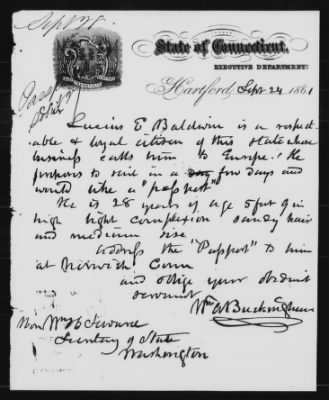 Sept 28
State of Connecticut,
EXECUTIVE DEPARTMENT;
Hartford, Sept 24 1861
Pass
Sept
Lucius E Baldwin is a respect-
able & loyal citizen of this state whose
business calls him to Europe. He
proposes to sail in a day few days and
would like a "passport"
He is 28 years of age 5 feet 9 in
high light complexion sandy hair
and medium size
Address the "Passport" to him
at Norwich Conn
and oblige your obedient
servant
Wm A Buckingham
Hon Wm H Seward
Secretary of State
Washington